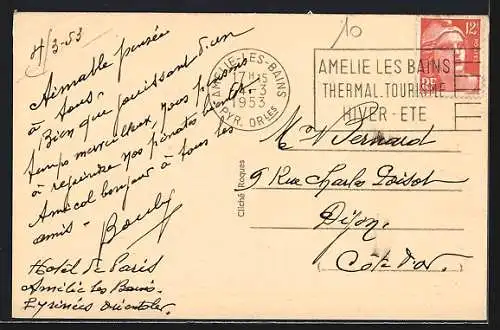 4/3-53
Aimable pensée
à tous.
Bien que jouissant d'un
temps merveilleux, nous pensons
à rejoindre nos pénates bientôt.
Amical bonjour à tous les
amis -
Bouly
Hotel de Paris
Amélie les Bains.
Pyrénées Orientales.
Cliché Roques
10
AMELIE-LES-BAINS
17H15
4-3
1953
PYR. ORLES
AMELIE LES BAINS
THERMAL.TOURISME
HIVER-ETE
12F
RF
Mr Vernard
9 Rue Charles Poisot
Dijon.
Côte d'or.